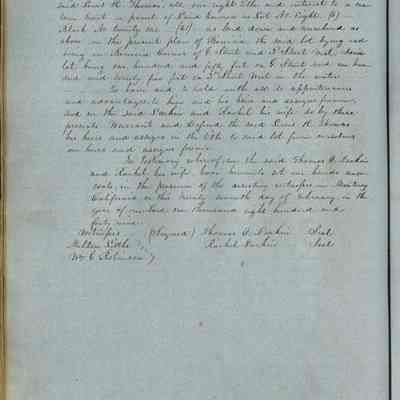 said Ernst the Thomas, all our right title and interest to a cer-
tain tract or parcel of Land known as Lot No Eight (8)
Block No twenty one (21) as laid down and numbered as
above in the present plan of Benicia the said lot lying and
being in Benicia corner of G Street and 3d Street West, said
lot being one hundred and fifty feet on G Street and one hun-
dred and seventy five feet on 3d Street West in the
To have and to hold with all the appurtenances
and advantages to him and his heirs and assigns forever,
And we the said Larkin and Rachel his wife do by these
presents Warrant and Defend the said Thomas
his heirs and assigns in the title to said lot from ourselves
our heirs and assigns forever.
In Testimony whereof we the said Thomas O. Larkin
and Rachel his wife have hereunto set our hands and
seals, in the presence of the attesting witnesses in Monterey
California on this twenty seventh day of February, in the
year of our Lord one thousand eight hundred and
forty nine.
Witnesses (Signed) Thomas O. Larkin Seal
Milton Rachel Larkin Seal
Wm C Robinson